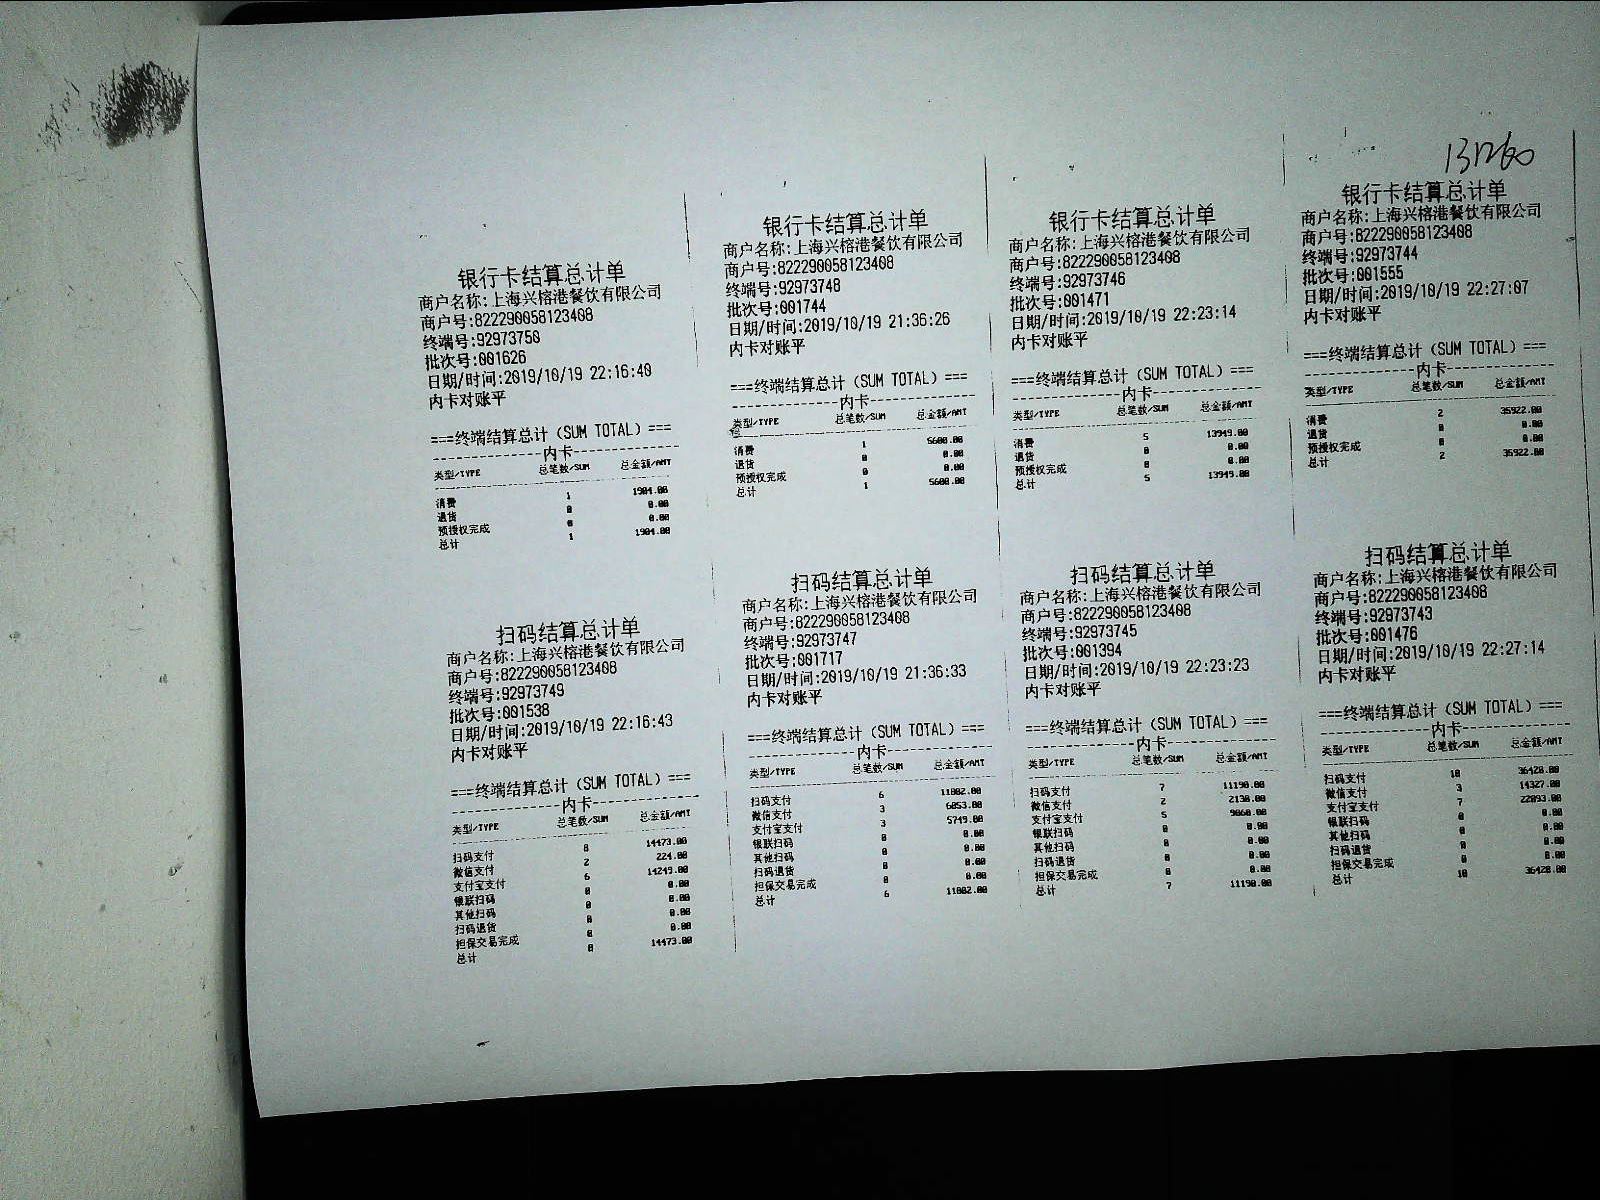 131260
银行卡结算总计单
商户名称:上海兴榕港餐饮有限公司
商户号:822290058123408
终端号:92973750
批次号:001626
日期/时间:2019/10/19 22:16:40
内卡对账平
===终端结算总计(SUM TOTAL)===
内卡
类型/TYPE 总笔数/SUM 总金额/AMT
消费 1 1904.00
退货 0 0.00
预授权完成 0 0.00
总计 1 1904.00
银行卡结算总计单
商户名称:上海兴榕港餐饮有限公司
商户号:822290058123408
终端号:92973748
批次号:001744
日期/时间:2019/10/19 21:36:26
内卡对账平
===终端结算总计(SUM TOTAL)===
内卡
类型/TYPE 总笔数/SUM 总金额/AMT
消费 1 5600.00
退货 0 0.00
预授权完成 0 0.00
总计 1 5600.00
银行卡结算总计单
商户名称:上海兴榕港餐饮有限公司
商户号:822290058123408
终端号:92973746
批次号:001471
日期/时间:2019/10/19 22:23:14
内卡对账平
===终端结算总计(SUM TOTAL)===
内卡
类型/TYPE 总笔数/SUM 总金额/AMT
消费 5 13949.00
退货 0 0.00
预授权完成 0 0.00
总计 5 13949.00
银行卡结算总计单
商户名称:上海兴榕港餐饮有限公司
商户号:822290058123408
终端号:92973744
批次号:001555
日期/时间:2019/10/19 22:27:07
内卡对账平
===终端结算总计(SUM TOTAL)===
内卡
类型/TYPE 总笔数/SUM 总金额/AMT
消费 2 35922.00
退货 0 0.00
预授权完成 0 0.00
总计 2 35922.00
扫码结算总计单
商户名称:上海兴榕港餐饮有限公司
商户号:822290058123408
终端号:92973749
批次号:001538
日期/时间:2019/10/19 22:16:43
内卡对账平
===终端结算总计(SUM TOTAL)===
内卡
类型/TYPE 总笔数/SUM 总金额/AMT
扫码支付 8 14473.00
微信支付 2 224.00
支付宝支付 6 14249.00
银联扫码 0 0.00
其他扫码 0 0.00
扫码退货 0 0.00
担保交易完成 0 0.00
总计 8 14473.00
扫码结算总计单
商户名称:上海兴榕港餐饮有限公司
商户号:822290058123408
终端号:92973747
批次号:001717
日期/时间:2019/10/19 21:36:33
内卡对账平
===终端结算总计(SUM TOTAL)===
内卡
类型/TYPE 总笔数/SUM 总金额/AMT
扫码支付 6 11802.00
微信支付 3 6053.00
支付宝支付 3 5749.00
银联扫码 0 0.00
其他扫码 0 0.00
扫码退货 0 0.00
担保交易完成 0 0.00
总计 6 11802.00
扫码结算总计单
商户名称:上海兴榕港餐饮有限公司
商户号:822290058123408
终端号:92973745
批次号:001394
日期/时间:2019/10/19 22:23:23
内卡对账平
===终端结算总计(SUM TOTAL)===
内卡
类型/TYPE 总笔数/SUM 总金额/AMT
扫码支付 7 11190.00
微信支付 2 2130.00
支付宝支付 5 9060.00
银联扫码 0 0.00
其他扫码 0 0.00
扫码退货 0 0.00
担保交易完成 0 0.00
总计 7 11190.00
扫码结算总计单
商户名称:上海兴榕港餐饮有限公司
商户号:822290058123408
终端号:92973743
批次号:001476
日期/时间:2019/10/19 22:27:14
内卡对账平
===终端结算总计(SUM TOTAL)===
内卡
类型/TYPE 总笔数/SUM 总金额/AMT
扫码支付 10 36420.00
微信支付 3 14327.00
支付宝支付 7 22093.00
银联扫码 0 0.00
其他扫码 0 0.00
扫码退货 0 0.00
担保交易完成 0 0.00
总计 10 36420.00